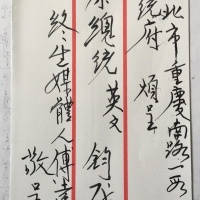 北市重慶南路一段
統府 煩呈
總統 英文 鈞
終生媒體人傅
敬呈